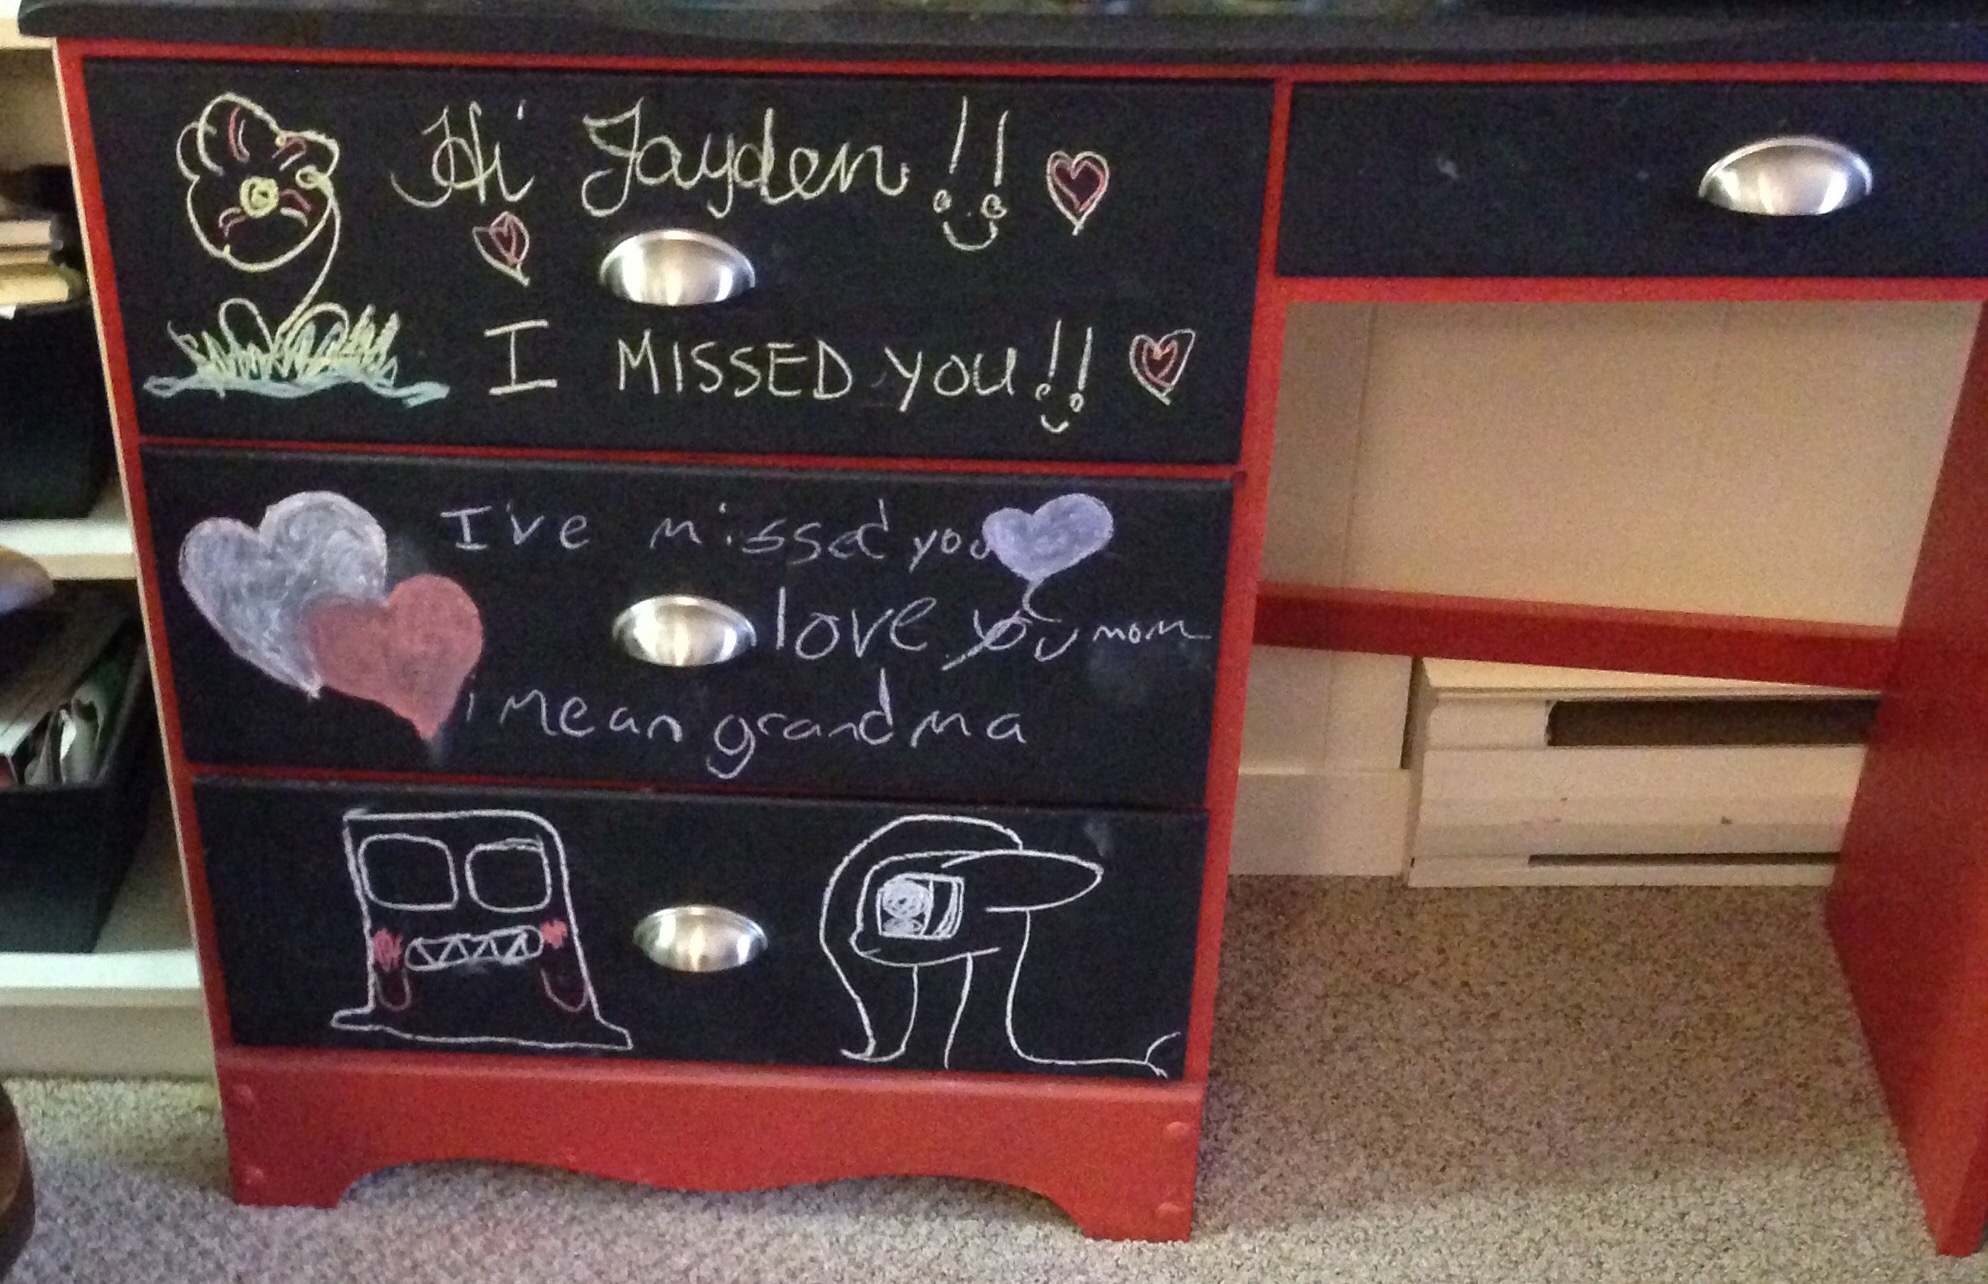 Hi Jayden!!
I MISSED YOU!!
I've missed you
love you mom
i mean grandma